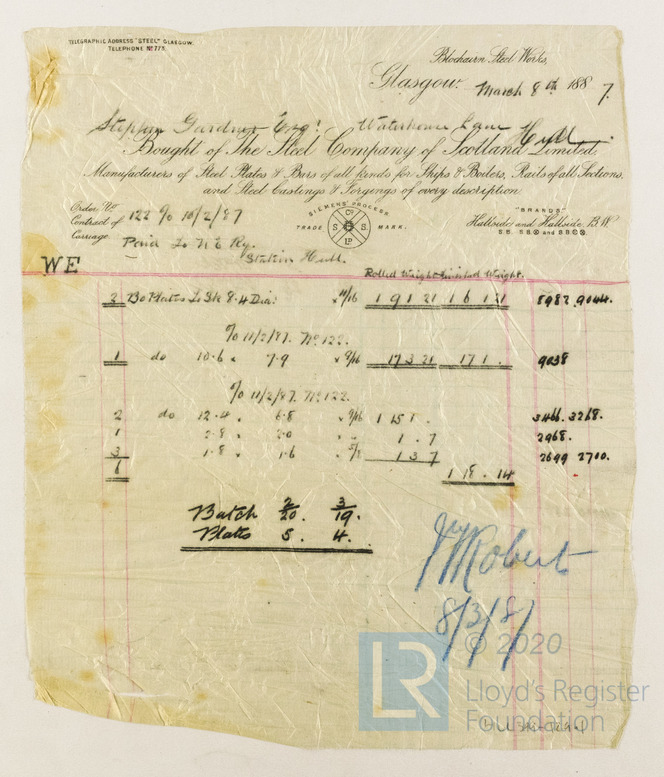 TELEGRAPHIC ADDRESS "STEEL" GLASGOW.
TELEPHONE No 773.
Blochairn Steel Works,
Glasgow. March 8th 1887.
Stephen Gardner Esq! Waterhouse Lane Hull.
Bought of The Steel Company of Scotland Limited,
Manufacturers of Steel Plates & Bars of all kinds for Ships & Boilers, Rails of all Sections,
and Steel Castings & Forgings of every description
Order No
Contract of 122 % 10/2/87
Carriage Paid To N E Ry.
Hull.
SIEMENS' PROCESS
TRADE MARK.
Co
S S
LD
"BRANDS"
Hallside and Hallside B.W.
WE
Rolled Weight Finished Weight.
2 Bo Plates 8.4 Dia: × 11/16 1 9 1 21 1 6 1 21 8982 9044.
% 11/2/87. No 122.
1 do 10.6 × 7.9 × 9/16 17 3 21 17 1. 9038
% 11/2/87. No 122.
2 do 12.4 × 6.8 × 9/16 1 15 1. 3466. 3268.
1 2.8 × 2.0 × 1.7 2968.
3 1.8 × 1.6 × 5/8 1 3 7 2699 2700.
6 1 18. 14
Batch 2/20. 3/19.
Plates 5. 4.
Robert
8/3/87
LR © 2020
Lloyd's Register
Foundation